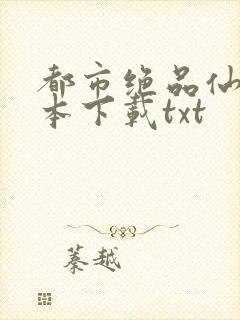 都市绝品仙
本下载txt
蓁越